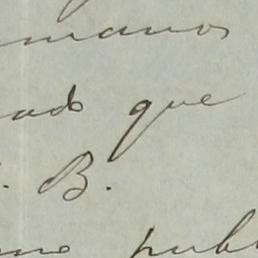 manos
ado que
. B.
publ